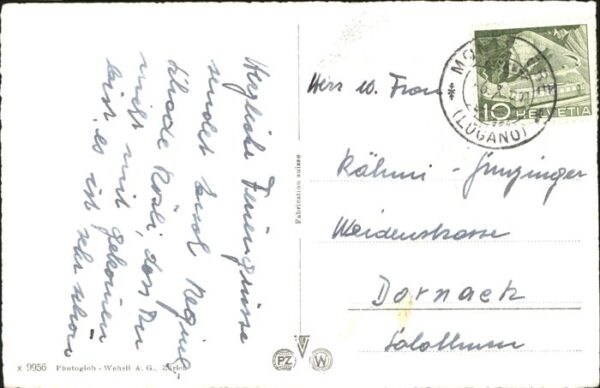 Herzliche Feriengrüsse
sendet Euch Regine,
schade Rösli, dass Du
nicht mit gekommen
bist, es ist sehr schön
Fabrication suisse
Herr u. Frau
MON BRE
(LUGANO)
10 HELVETIA
Rähmi-
Weidenstrasse
Dornach
Solothurn
X 9956 Photoglob-Wehrli A. G., Zürich
PZ W